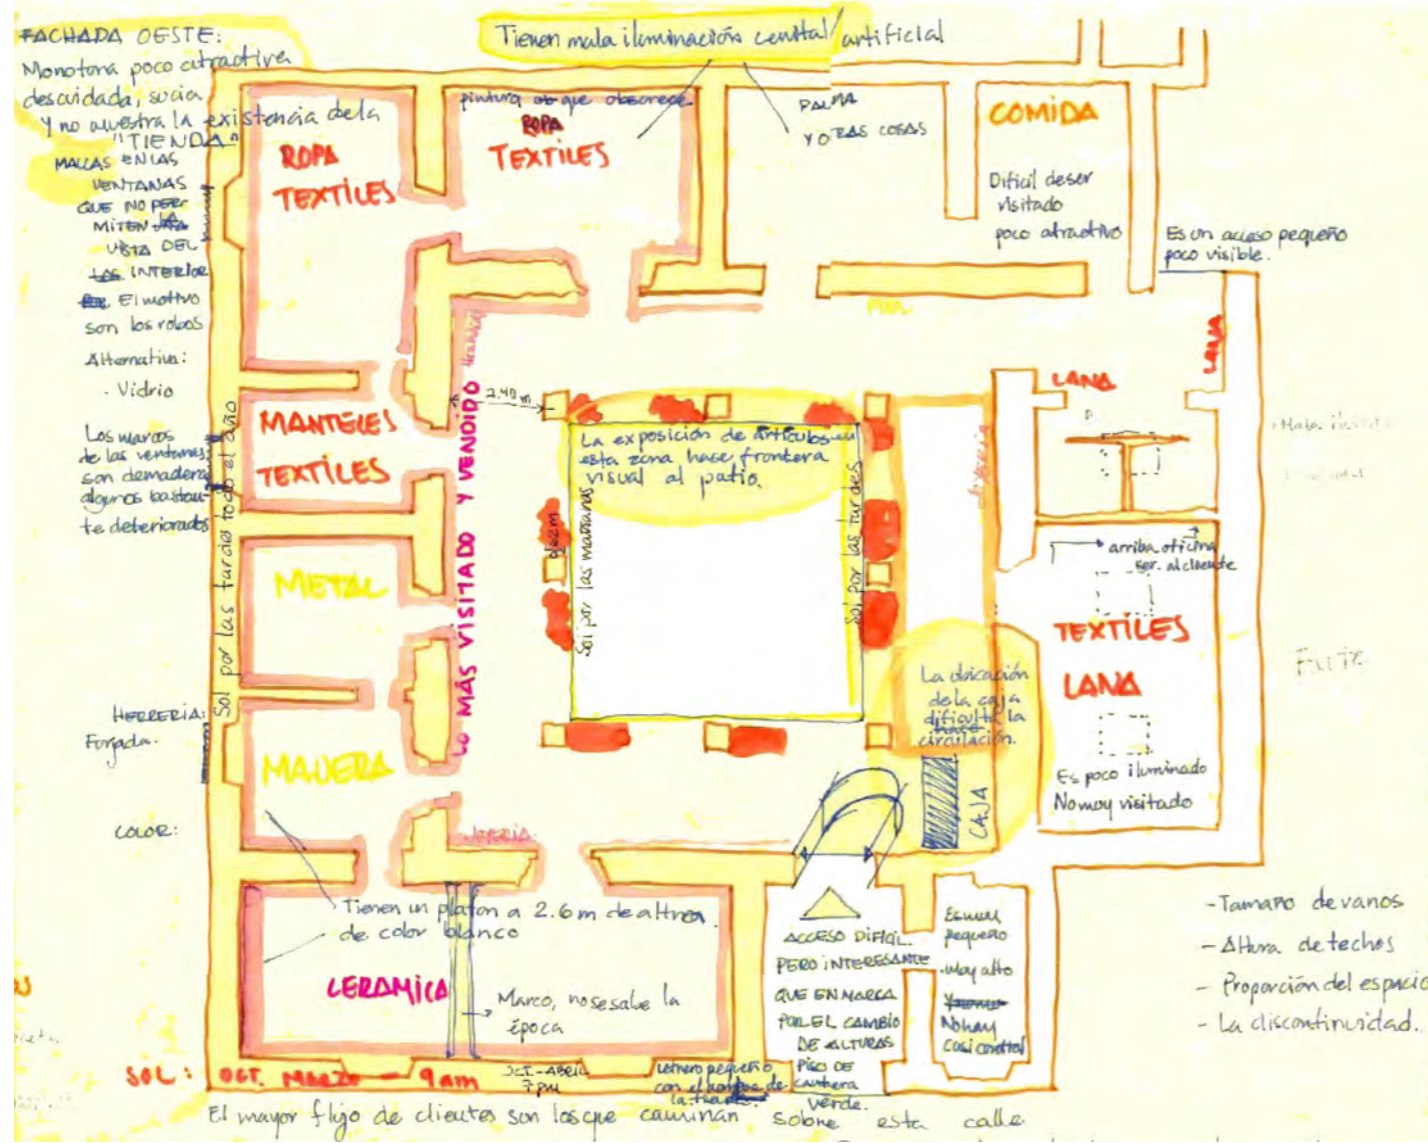 FACHADA OESTE:
Monotona poco atractiva
descuidada, sucia
y no muestra la existencia de la
"TIENDA"
MALLAS EN LAS
VENTANAS
QUE NO PER
MITEN LA
VISTA DEL
INTERIOR
El motivo
son los robos
Alternativa:
- Vidrio
Los marcos
de las ventanas
son demadera
algunos bastan-
te deteriorados
HERRERIA:
Forjada.
COLOR:
Tienen mala iluminación cenital/artificial
pintura que obscurece
ROPA
TEXTILES
ROPA
TEXTILES
PALMA
Y OTRAS COSAS
COMIDA
Dificil deser
visitado
poco atractivo
Es un acceso pequeño
poco visible.
PIEL
LANA
LANA
MANTELES
TEXTILES
METAL
MADERA
Sol por las tardes todo el año
LO MÁS VISITADO Y VENDIDO
2.40 m
La exposición de artículos en
esta zona hace frontera
visual al patio.
Sol por las mañanas
Sol por las tardes
arriba oficina
ser. al cliente
TEXTILES
LANA
Es poco iluminado
No muy visitado
La ubicación
de la caja
dificulta la
circulación.
CAJA
JOYERIA
Tienen un platon a 2.6 m de altura
de color blanco
CERAMICA
Marco, no se sabe la
época
ACCESO DIFICIL.
PERO INTERESANTE
QUE ENMARCA
POR EL CAMBIO
DE ALTURAS
PISO DE
cantera
verde.
Es muy
pequeño
.muy alto
No hay
luz cenital
- Tamaño de vanos
- Altura de techos
- Proporción del espacio
- La discontinuidad.
SOL: OCT. MARZO — 9am
OCT.-ABRIL
7 pm
Letrero pequeño
con el nombre de
la tienda
El mayor flujo de clientes son los que caminan sobre esta calle